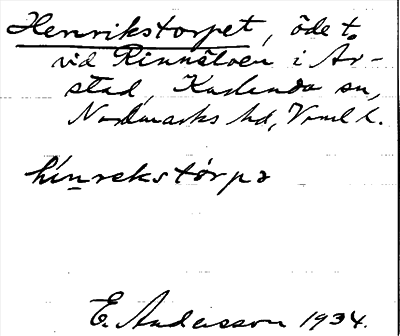 Henrikstorpet, öde t.
vid Rinnstoen i År-
stad, Karlanda sn,
Nordmarks hd, Vrml l.
hínrekstórpə
E. Andersson 1934.